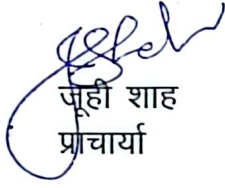 जूही शाह
प्राचार्या